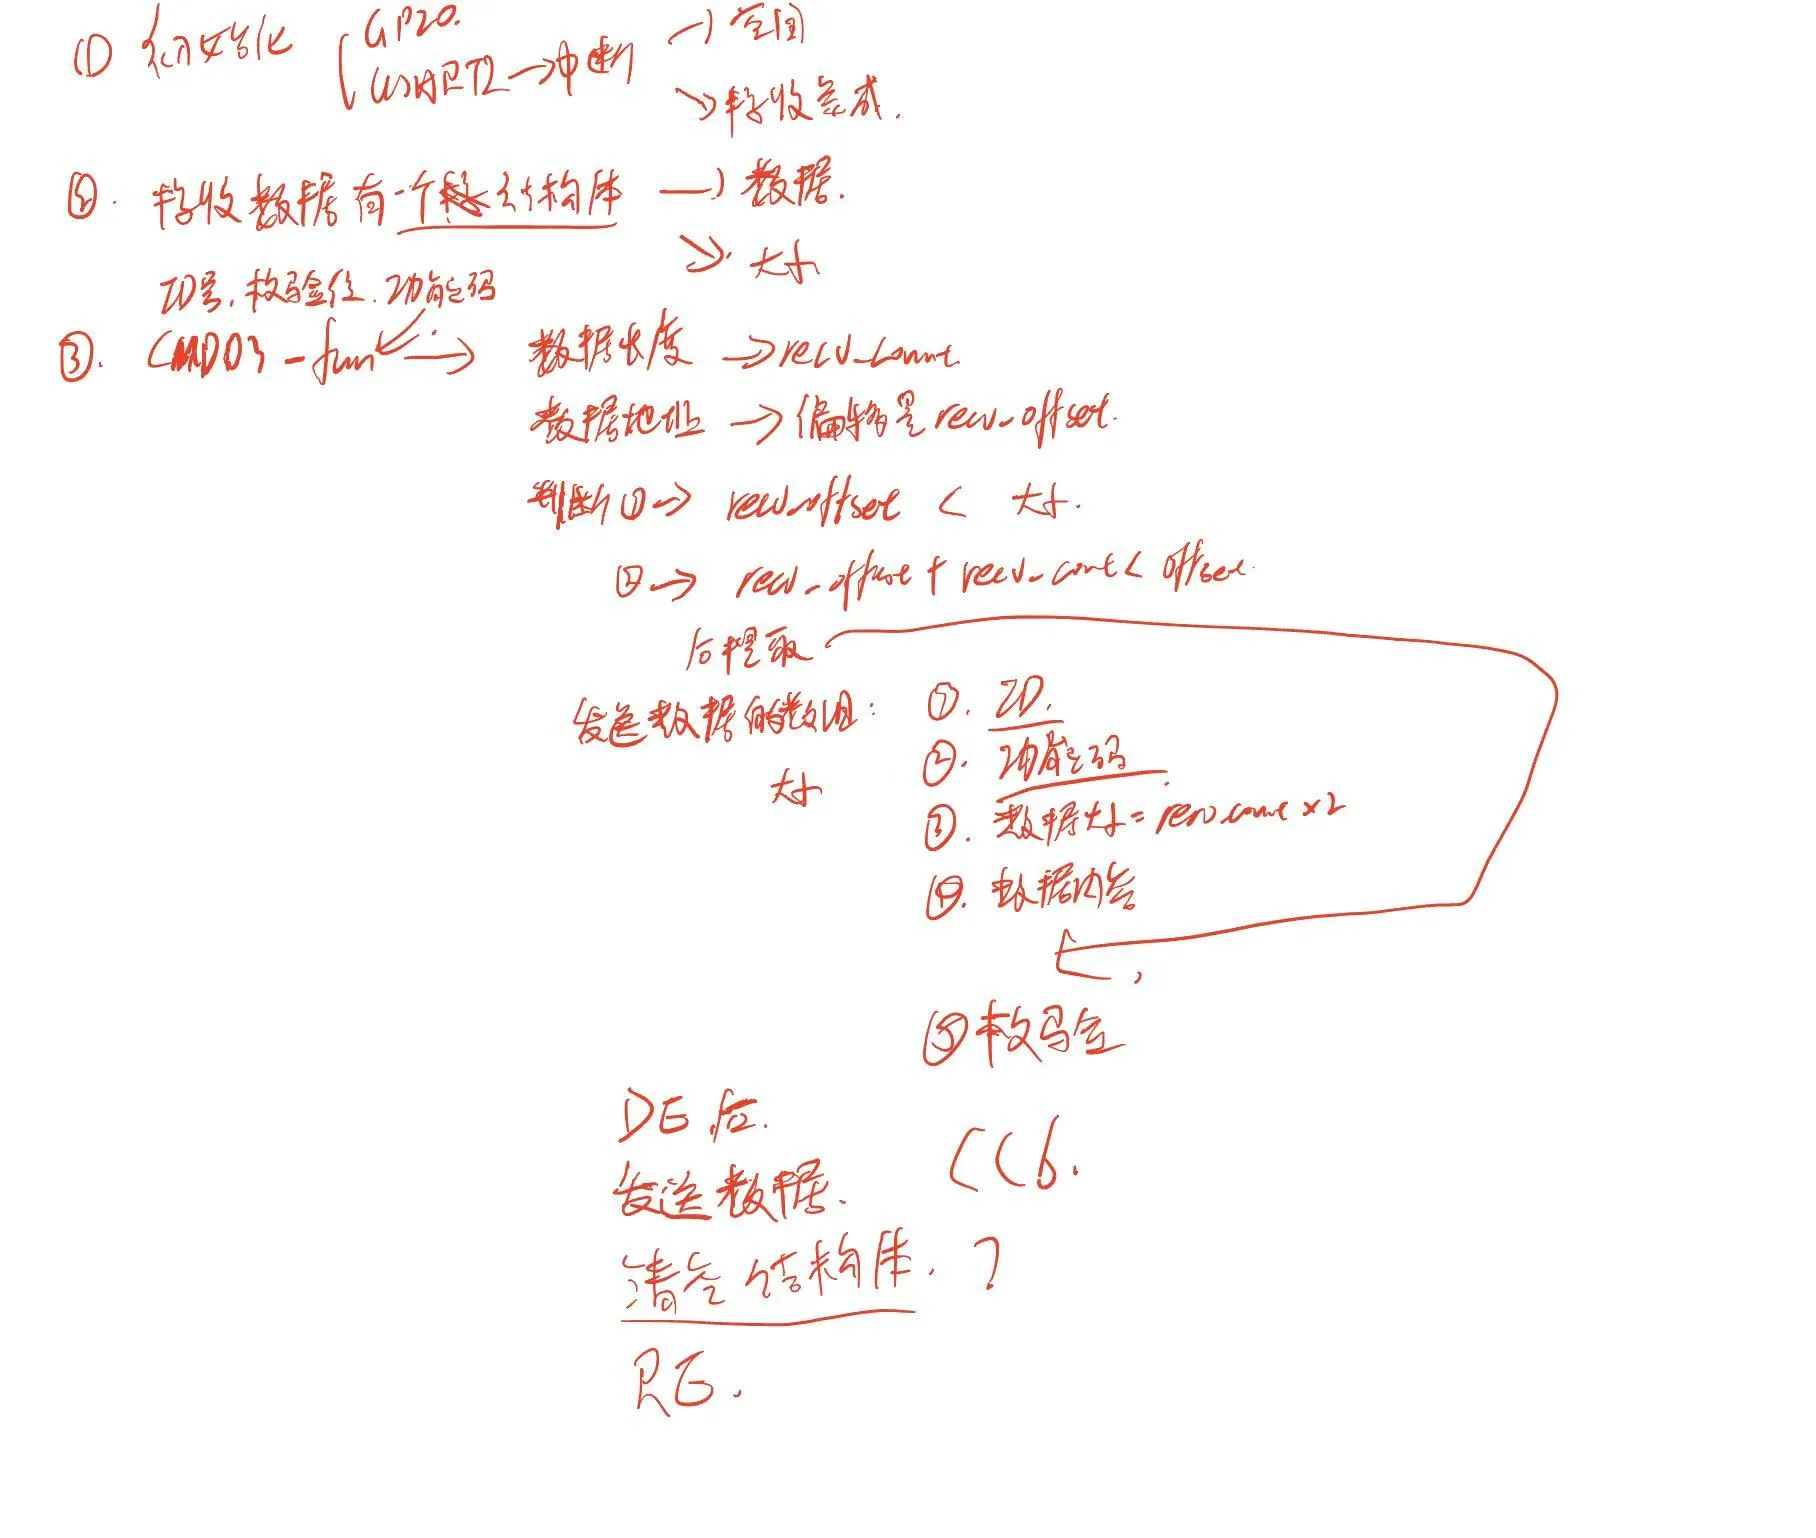 ① 初始化 { GPIO.
USART2 → 中断 → 空闲
→ 接收完成.
②. 接收数据有一个结构体 → 数据.
→ 大小
ID号, 校验位. 功能码
③. CMD03-fun → 数据长度 → recv_count.
数据地址 → 偏移量 recv_offset.
判断 ① → recv_offset < 大小.
② → recv_offset + recv_count < offset.
后提取
发送数据的数组: ①. ID.
大小 ②. 功能码.
③. 数据大小 = recv_count × 2
④. 数据内容
⑤ 校验
DE 后.
发送数据.
清空结构体. ?
RE.